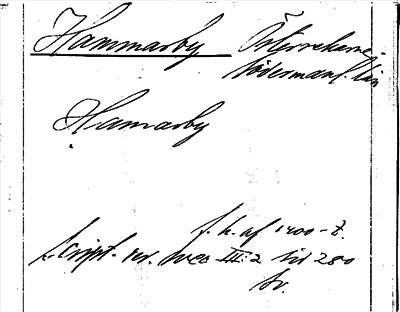 Hammarby Österrekarne
Södermanl. län
Hamarby
f. h. af 1400-t.
script. rer. svec III:2 sid 280